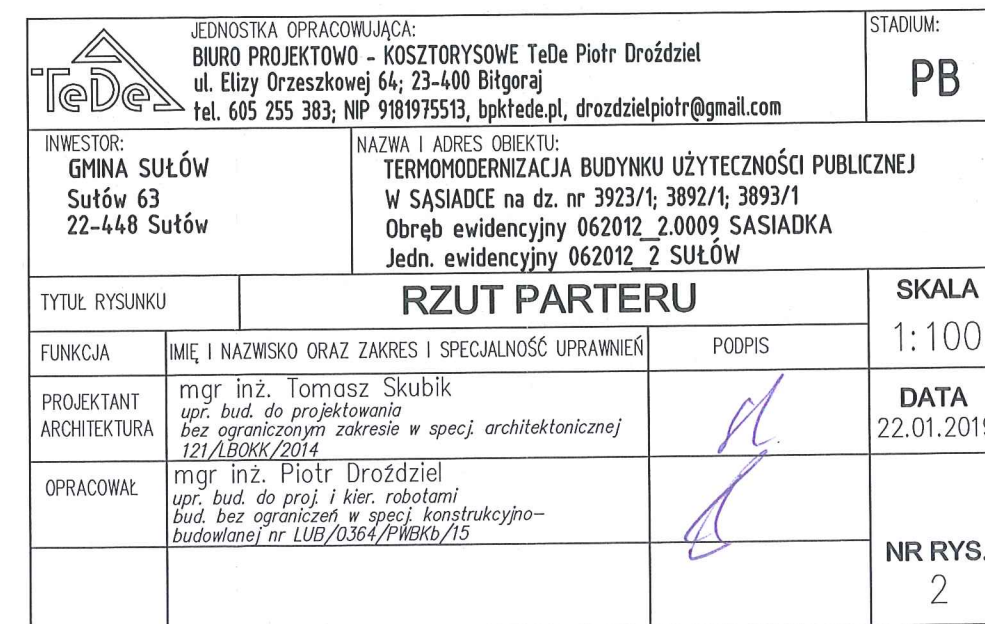 TeDe
JEDNOSTKA OPRACOWUJĄCA:
BIURO PROJEKTOWO - KOSZTORYSOWE TeDe Piotr Droździel
ul. Elizy Orzeszkowej 64; 23-400 Biłgoraj
tel. 605 255 383; NIP 9181975513, bpktede.pl, drozdzielpiotr@gmail.com
STADIUM:
PB
INWESTOR:
GMINA SUŁÓW
Sułów 63
22-448 Sułów
NAZWA I ADRES OBIEKTU:
TERMOMODERNIZACJA BUDYNKU UŻYTECZNOŚCI PUBLICZNEJ
W SĄSIADCE na dz. nr 3923/1; 3892/1; 3893/1
Obręb ewidencyjny 062012_2.0009 SASIADKA
Jedn. ewidencyjny 062012_2 SUŁÓW
TYTUŁ RYSUNKU
RZUT PARTERU
SKALA
1:100
FUNKCJA
IMIĘ I NAZWISKO ORAZ ZAKRES I SPECJALNOŚĆ UPRAWNIEŃ
PODPIS
PROJEKTANT
ARCHITEKTURA
mgr inż. Tomasz Skubik
upr. bud. do projektowania
bez ograniczonym zakresie w specj. architektonicznej
121/LBOKK/2014
DATA
22.01.2019
OPRACOWAŁ
mgr inż. Piotr Droździel
upr. bud. do proj. i kier. robotami
bud. bez ograniczeń w specj. konstrukcyjno-
budowlanej nr LUB/0364/PWBKb/15
NR RYS.
2